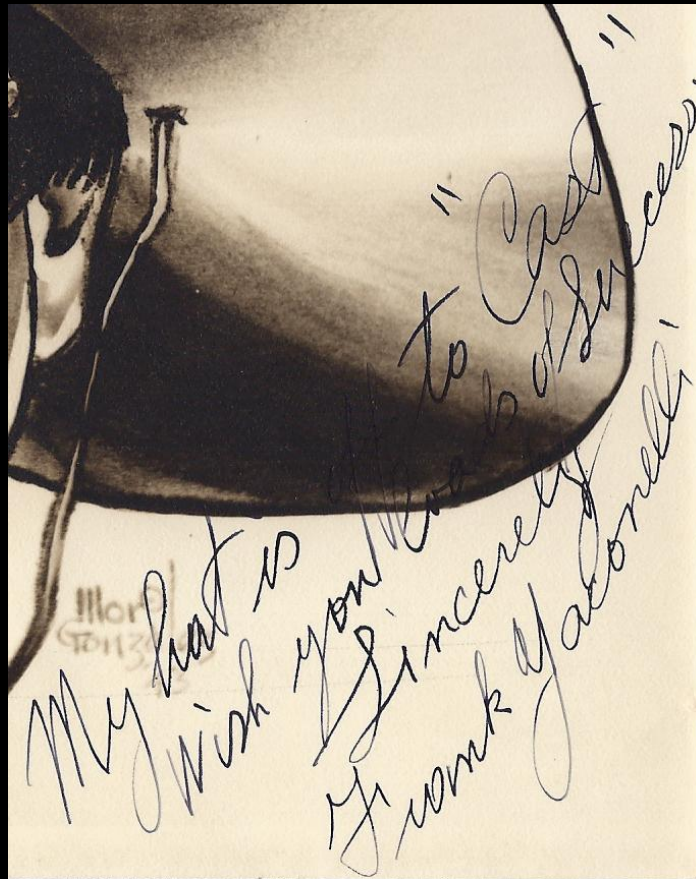 My hat is off to "Cast"
wish you loads of Success.
Sincerely
Frank Yaconelli